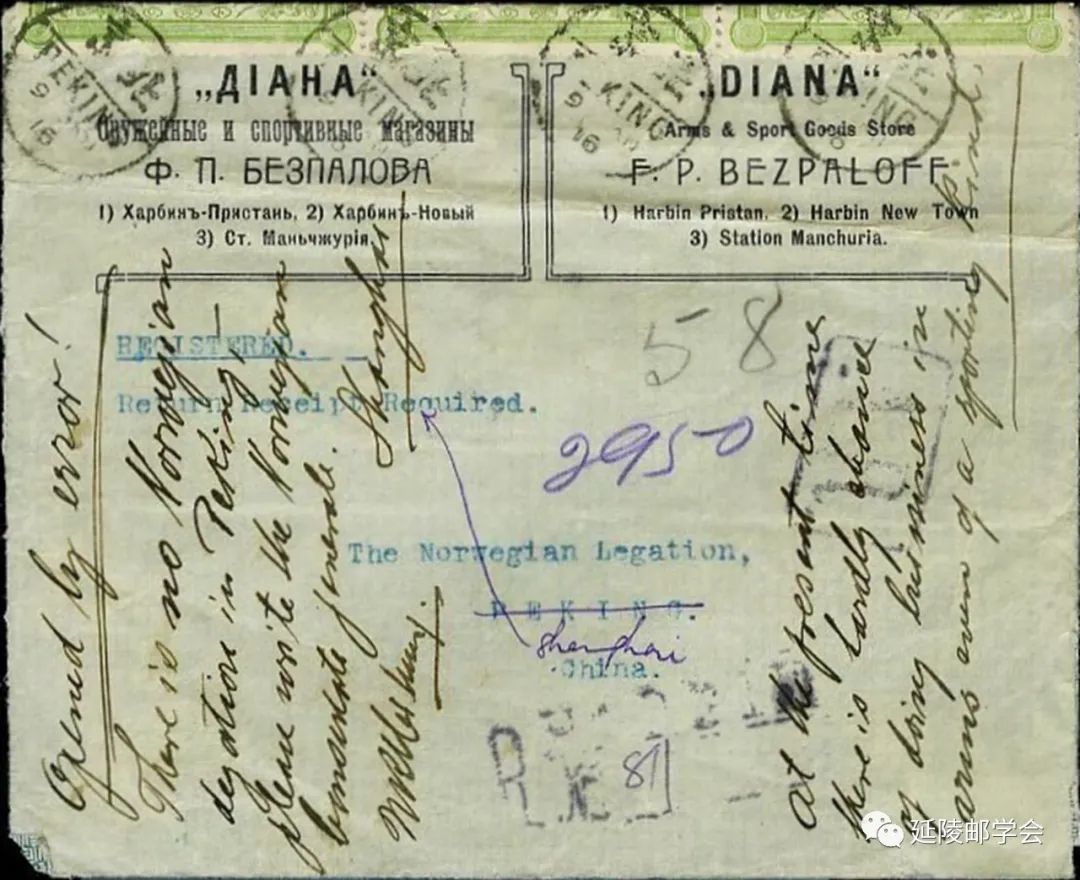 PEKING
9
16
KING
9
KING
9
16
KING
„ДІАНА“
Оружейные и спортивные магазины
Ф. П. БЕЗПАЛОВА
1) Харбинъ-Пристань, 2) Харбинъ-Новый
3) Ст. Маньчжурія.
„DIANA“
Arms & Sport Goods Store
F. P. BEZPALOFF
1) Harbin Pristan. 2) Harbin New Town
3) Station Manchuria.
REGISTERED.
Return Receipt Required.
58
2950
The Norwegian Legation,
PEKING.
Shanghai
China.
R
No
81
Opened by error!
There is no Norwegian
legation in Peking,
please write the Norwegian
Consulate General. Shanghai
At the present time
there is hardly chance
of doing business in
arms even of a sporting kind.
延陵邮学会